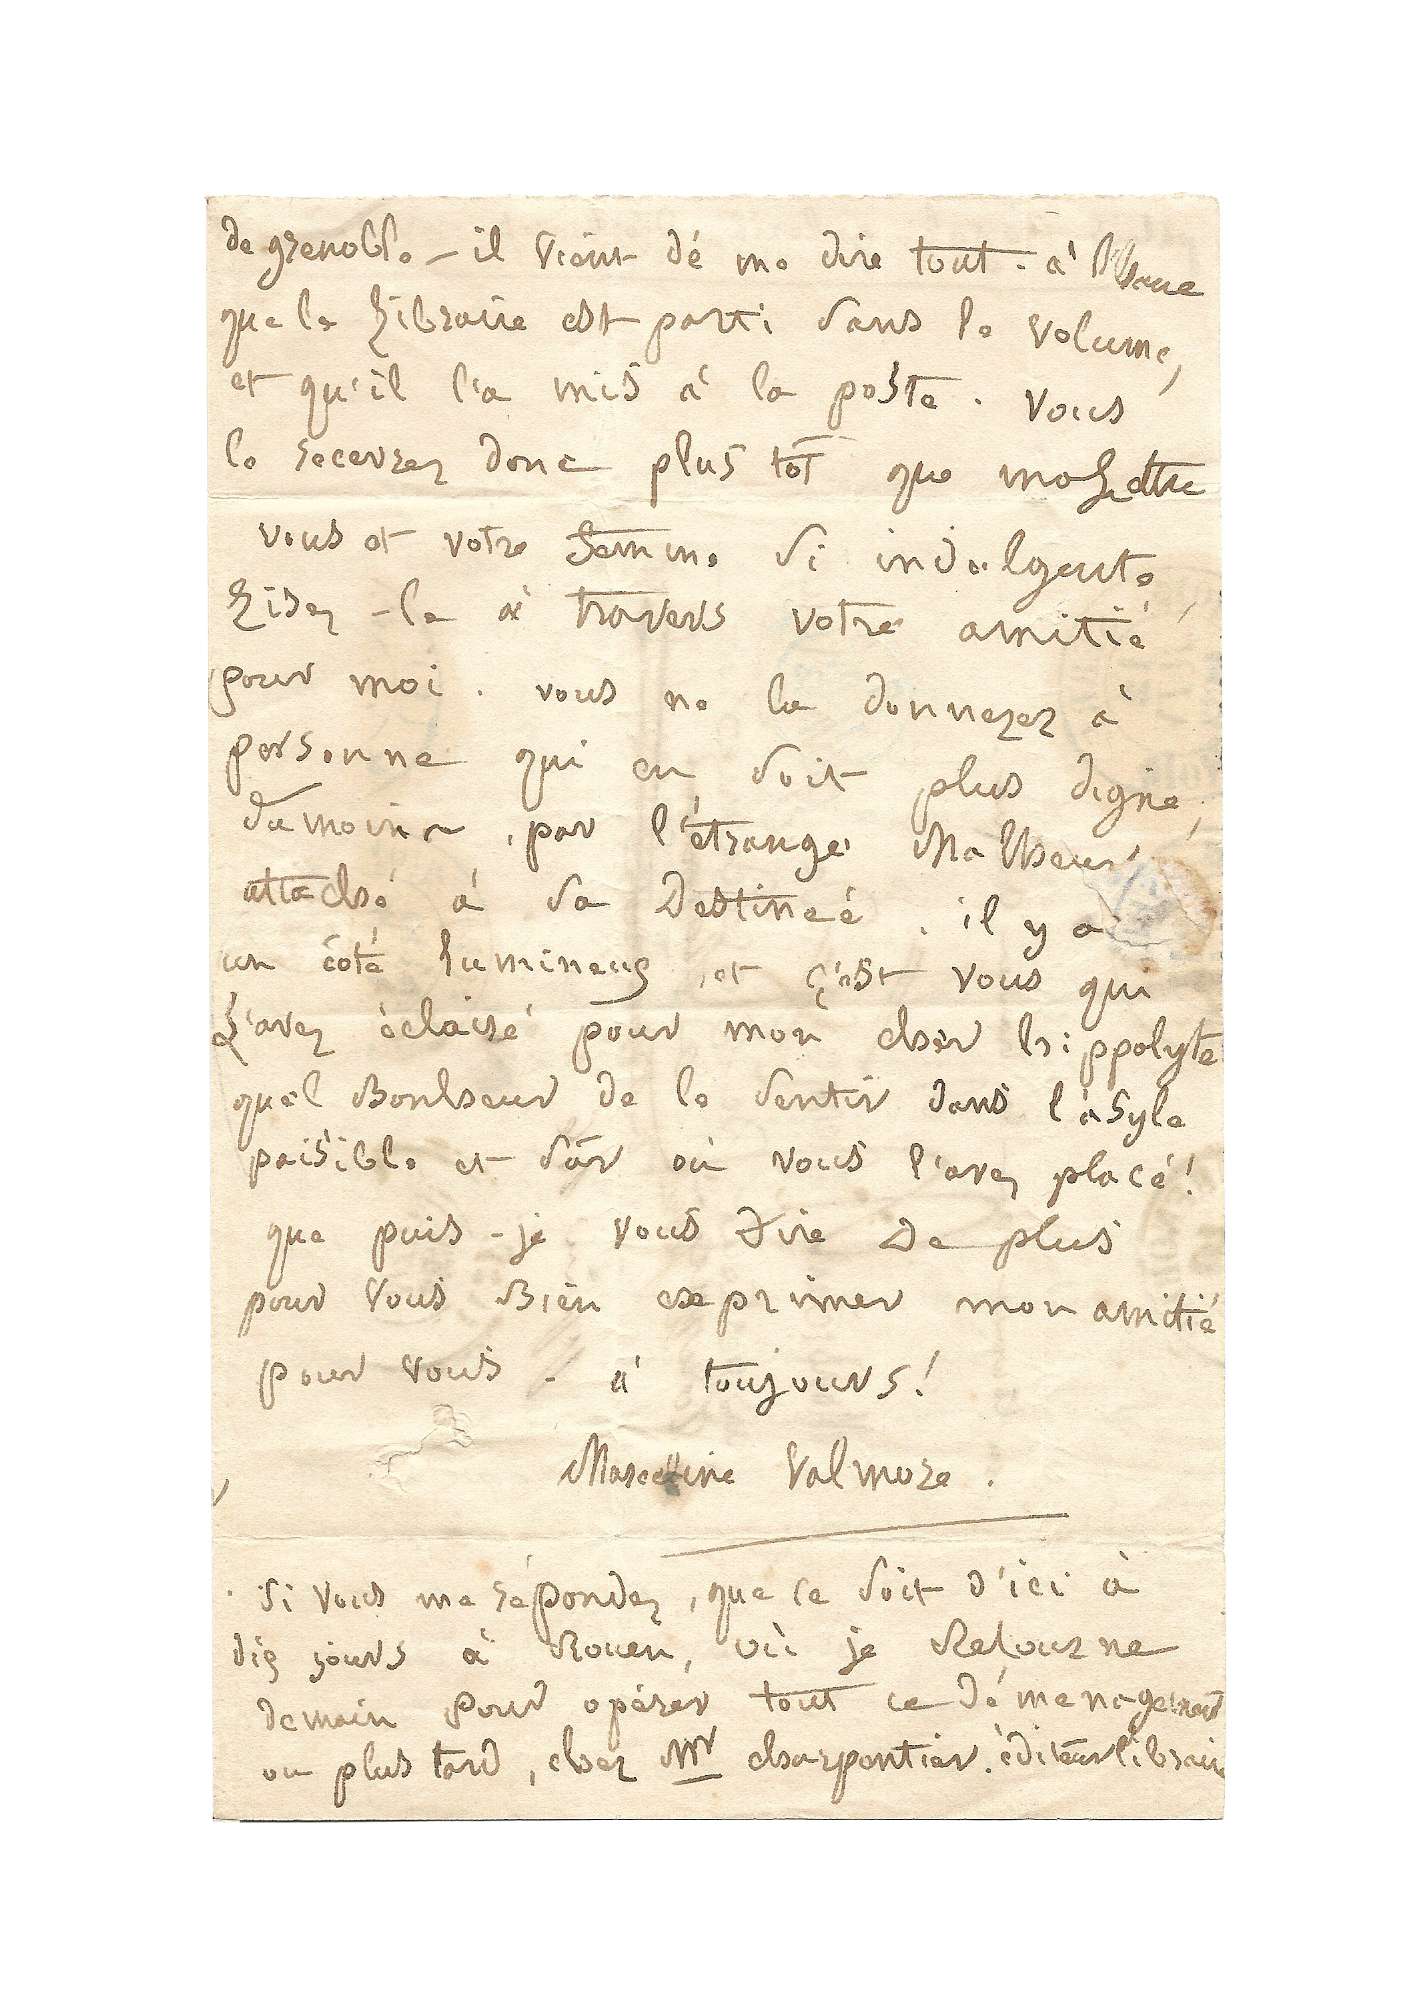 de grenoble – il vient dé me dire tout. à l'heure
que le Libraire est parti dans le volume,
et qu'il l'a mis à la poste. Vous
le recevrez donc plus tôt que ma Lettre
vous et votre femme si indulgente,
Lisez-le à travers votre amitié
pour moi. vous ne le donnerez à
personne qui en soit plus digne,
du moins, par l'étrange Malheur
attaché à sa Destinée. il y a
un côté lumineux, et c'est vous qui
L'avez éclairé pour mon cher hippolyte
quel Bonheur de le sentir dans l'asyle
paisible et sûr où vous l'avez placé!
que puis-je vous Dire De plus
pour vous Bien exprimer mon amitié
pour vous. à toujours!
Marcelline Valmore.
si vous me répondez, que ce soit d'ici à
dix jours à Rouen, où je Retourne
demain pour opérer tout ce déménagement
ou plus tard, chez Mr charpentier. éditeur libraire